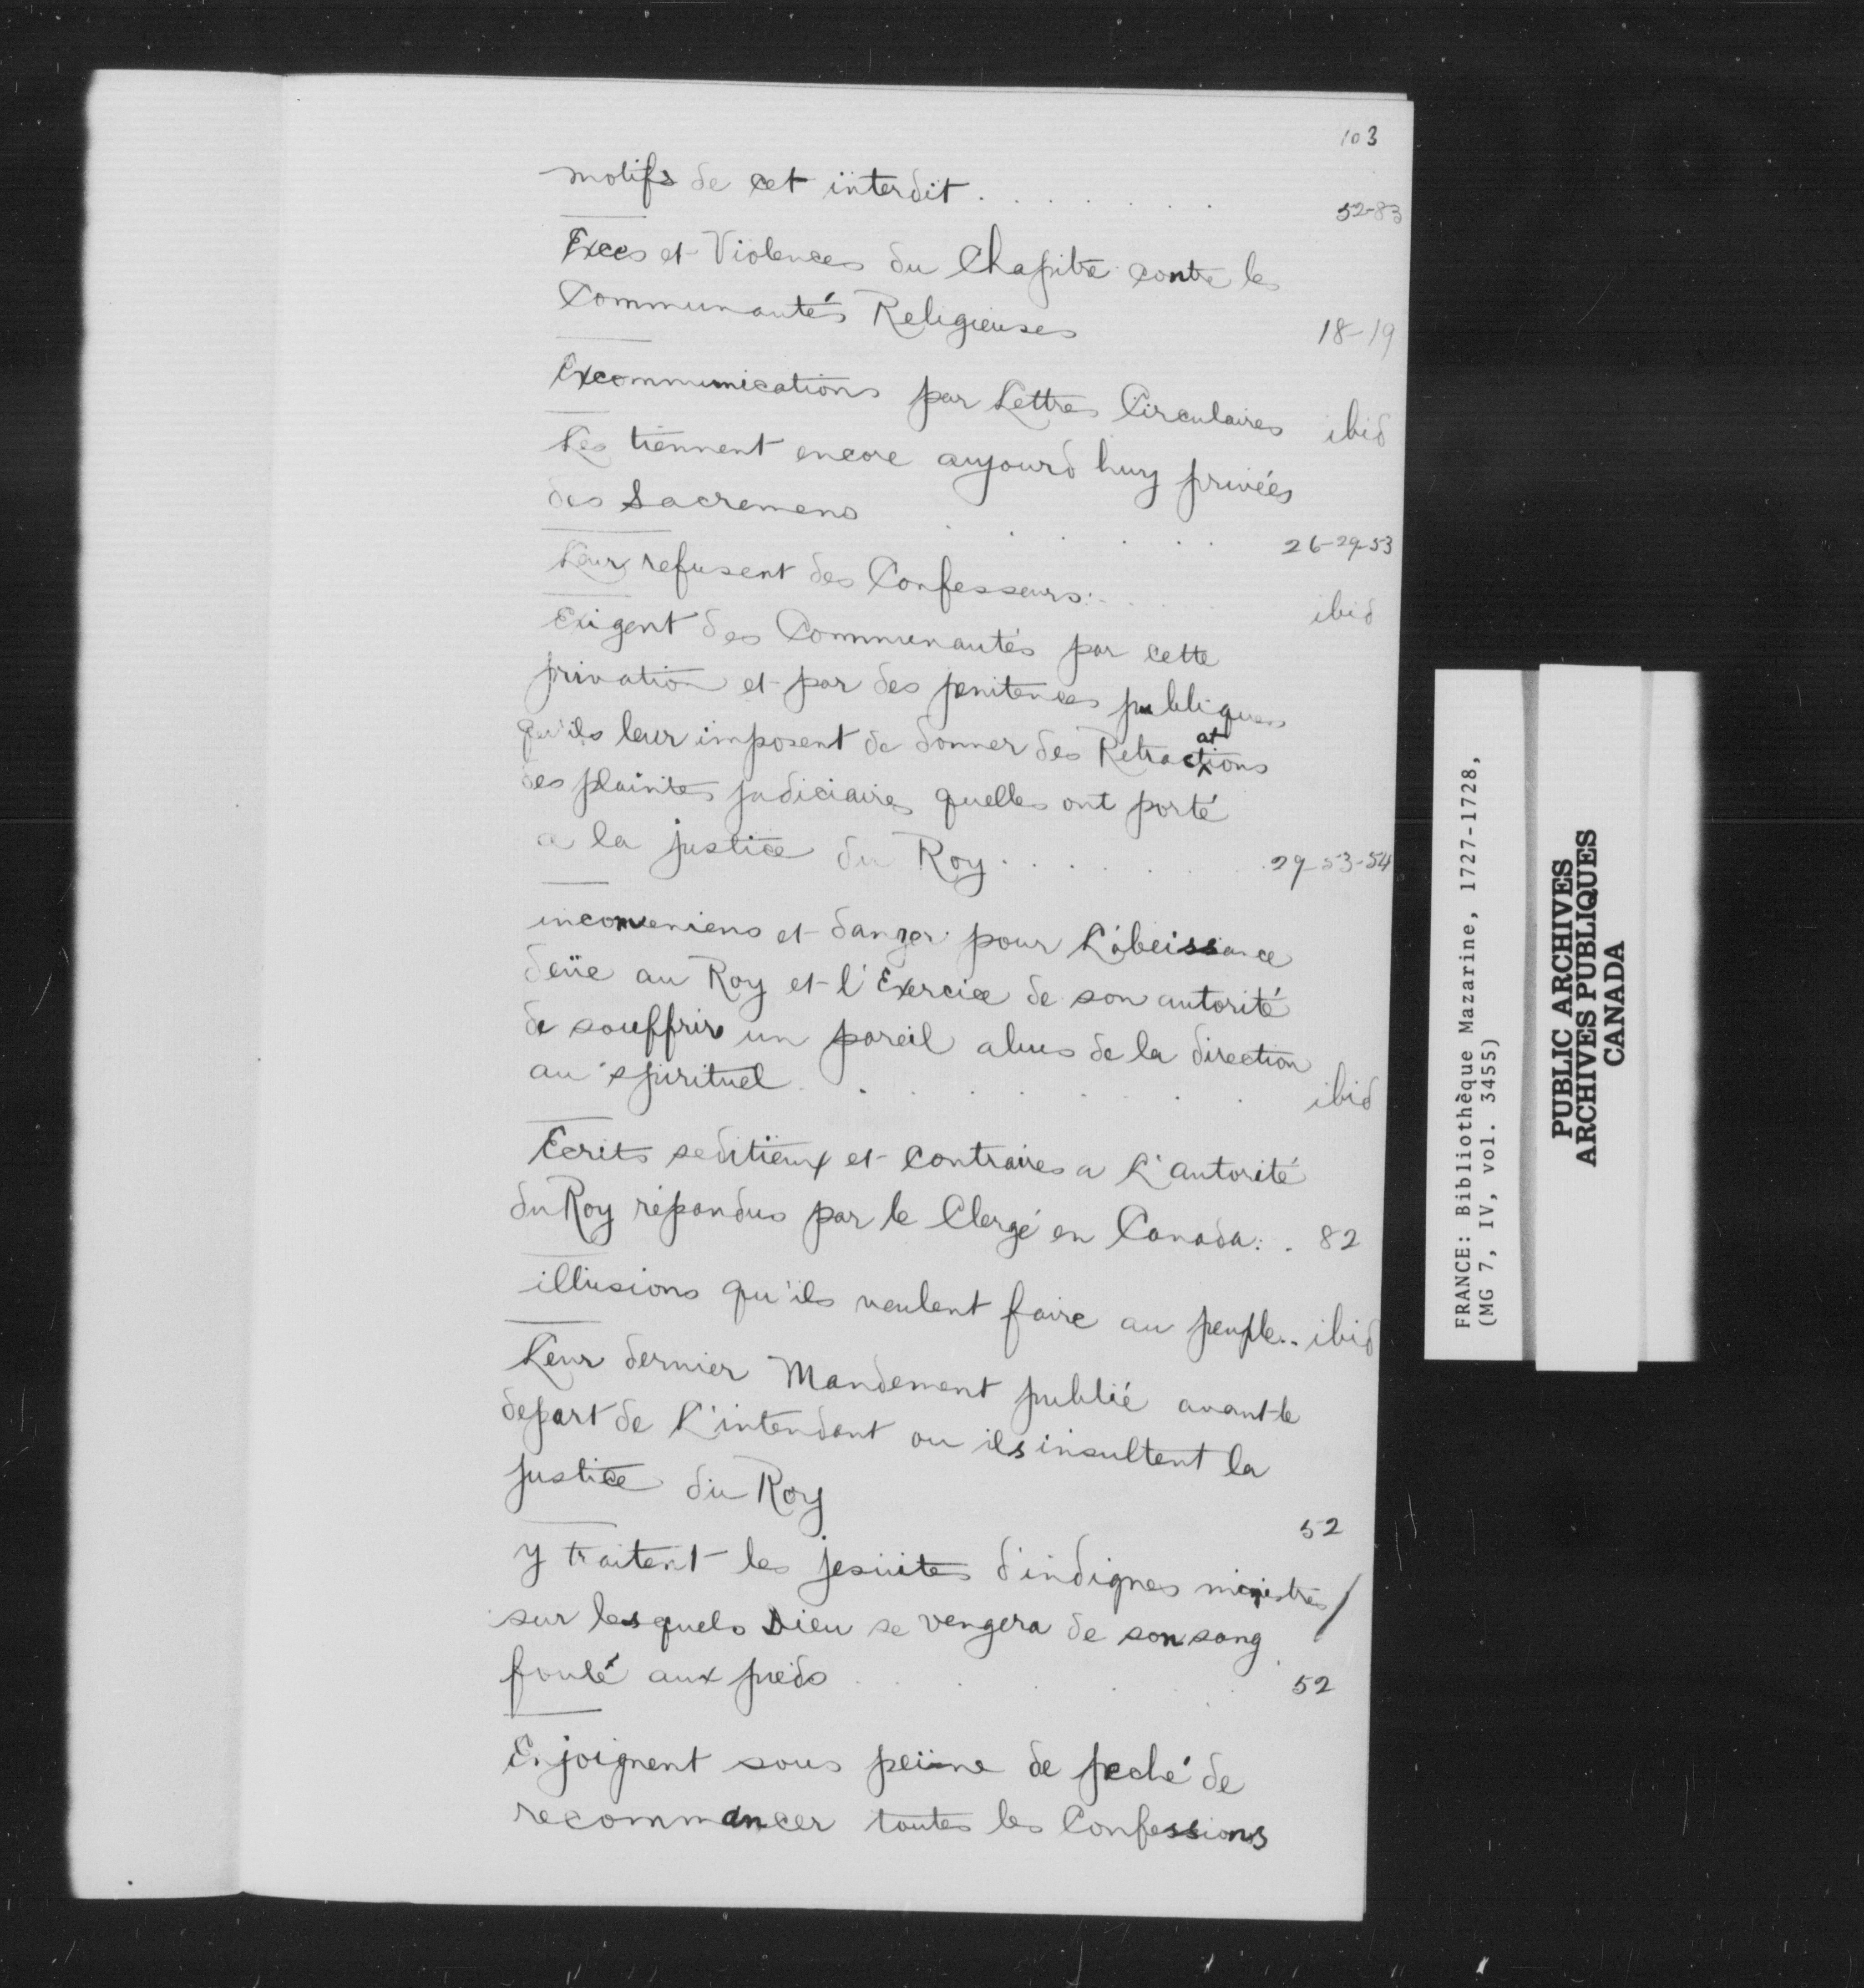 103
motifs de cet interdit . . . . . . . 52-83
Exces et Violences du Chapitre contre les
Communautés Religieuses 18-19
Excommunications par Lettres Circulaires ibid
Les tiennent encore aujourd huy privées
des Sacremens . . . . . 26-29-53
Leur refusent des Confesseurs: . . ibid
Exigent des Communautés par cette
privation et par des penitences publiques
qu'ils leur imposent de donner des Retractations
des plaintes judiciaires quelles ont porté
a la justice du Roy . . . . . . 29-53-54
inconveniens et danger pour L'obeissance
deüe au Roy et l'Exercice de son autorité
de souffrir un pareil abus de la direction
au spirituel . . . . . . ibid
Ecrits seditieux et contraires a L'autorité
du Roy répandus par le Clergé en Canada: . 82
illusions qu'ils veulent faire au peuple.. ibid
Leur dernier Mandement publié avant le
depart de L'intendant ou ils insultent la
justice du Roy 52
y traitent les jesuites d'indignes ministres /
sur lesquels Dieu se vengera de son sang
foulé aux pieds . . . . . 52
Enjoignent sous peine de peché de
recommancer toutes les Confessions
FRANCE: Bibliothèque Mazarine, 1727-1728,
(MG 7, IV, vol. 3455)
PUBLIC ARCHIVES
ARCHIVES PUBLIQUES
CANADA